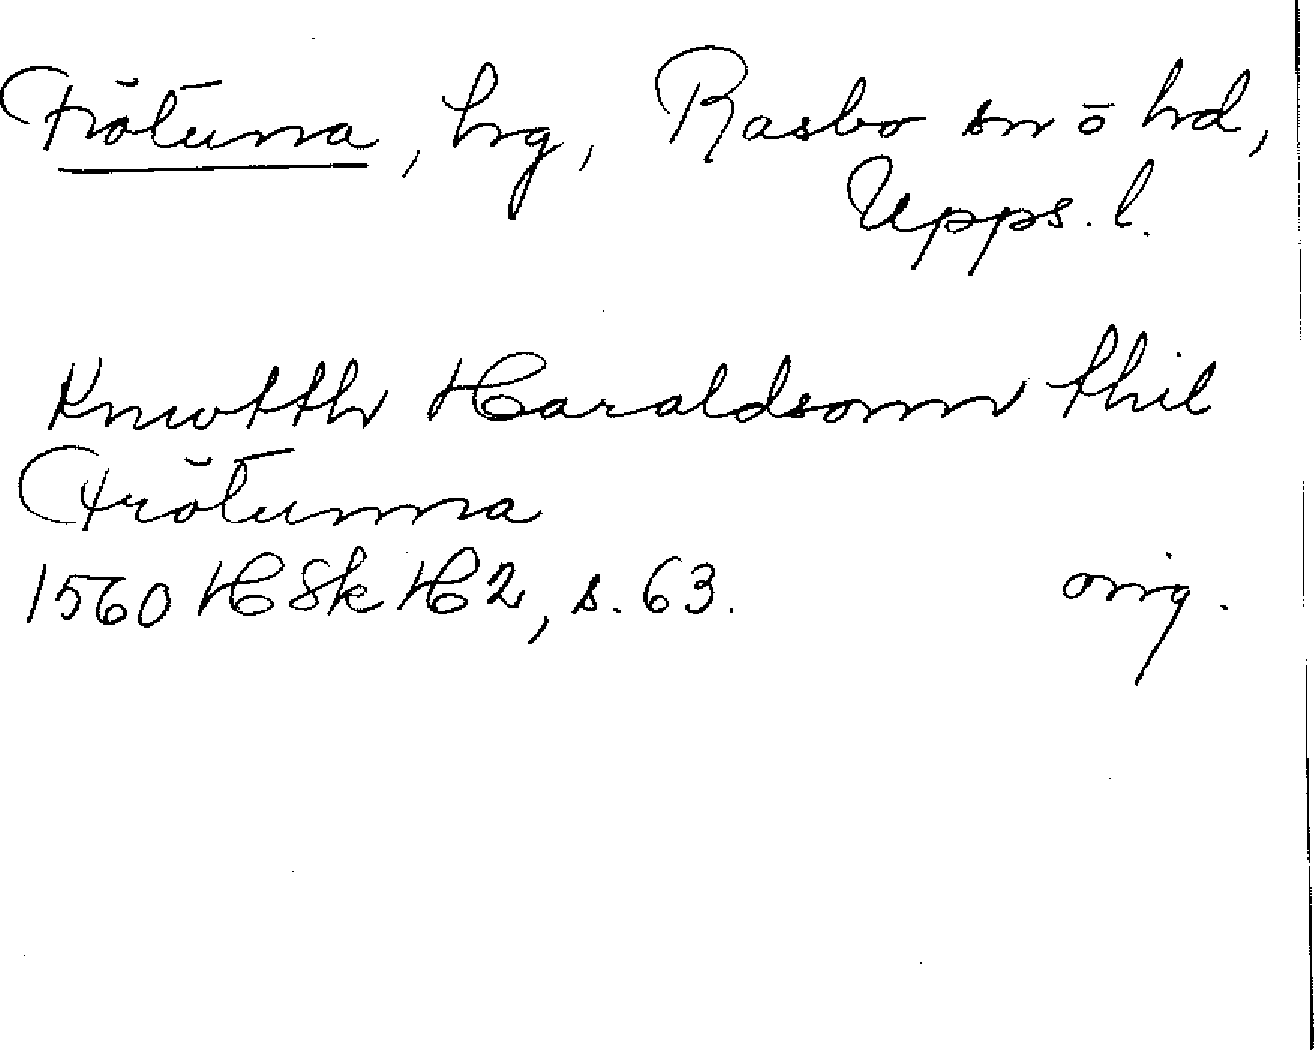 Frötuna, hrg, Rasbo sn ō hd,
Upps. l.
Knwtth Haraldsonn thil
Frötunna
1560 HSk H2, s. 63. orig.